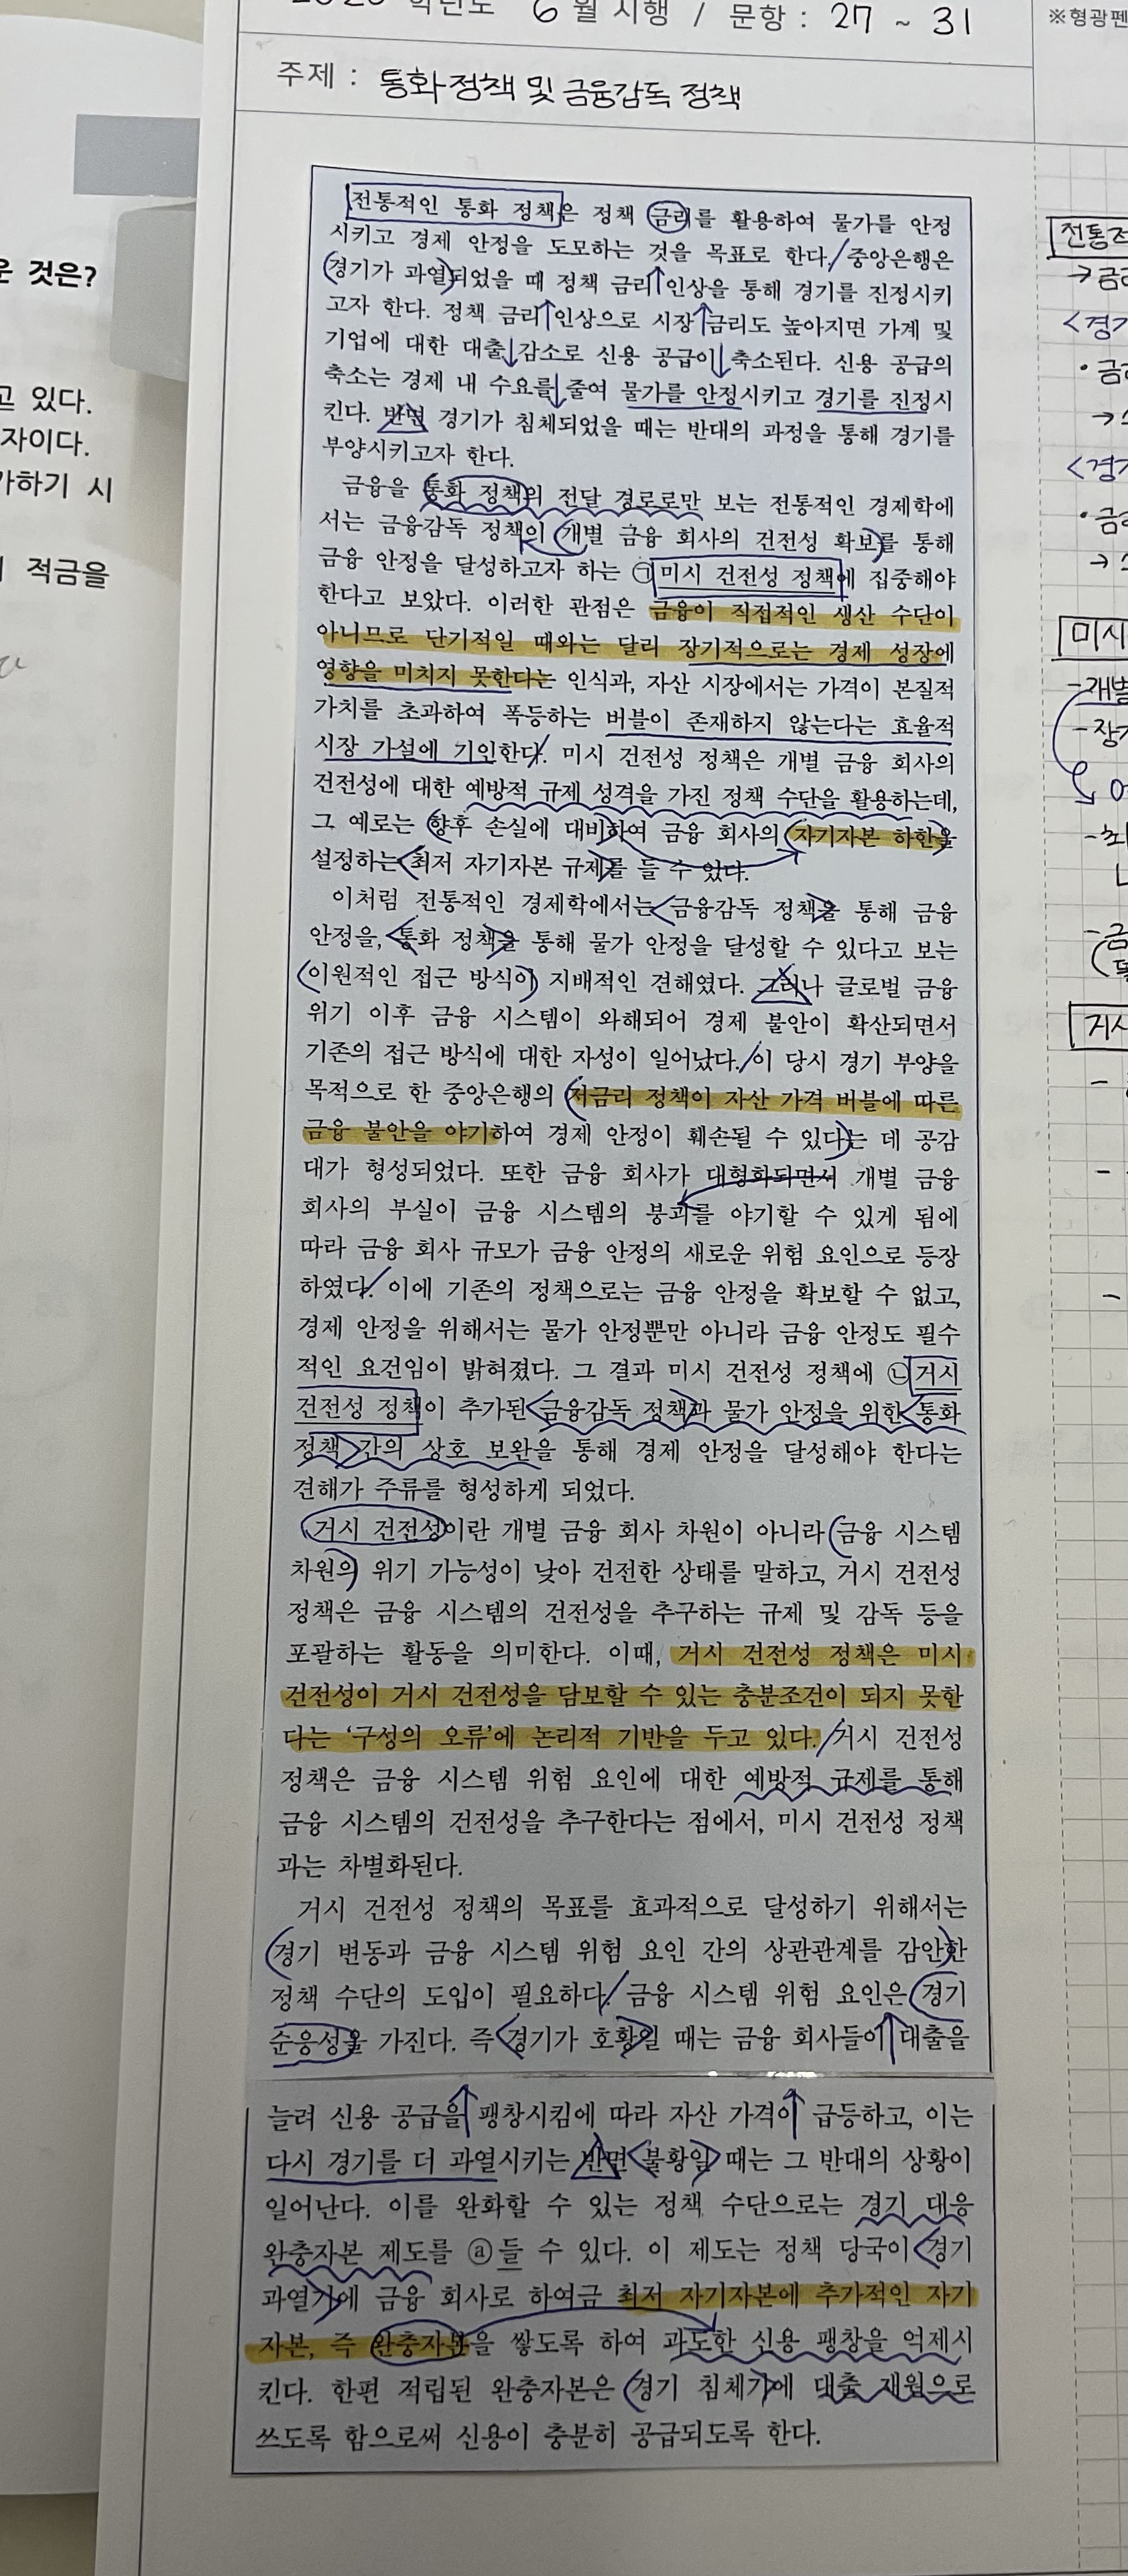 학년도 6월 시행 / 문항 : 27 ~ 31
※형광펜
주제 : 통화정책 및 금융감독 정책
전통적인 통화 정책은 정책 금리를 활용하여 물가를 안정
시키고 경제 안정을 도모하는 것을 목표로 한다. 중앙은행은
경기가 과열되었을 때 정책 금리 인상을 통해 경기를 진정시키
고자 한다. 정책 금리 인상으로 시장 금리도 높아지면 가계 및
기업에 대한 대출 감소로 신용 공급이 축소된다. 신용 공급의
축소는 경제 내 수요를 줄여 물가를 안정시키고 경기를 진정시
킨다. 반면 경기가 침체되었을 때는 반대의 과정을 통해 경기를
부양시키고자 한다.
금융을 통화 정책의 전달 경로로만 보는 전통적인 경제학에
서는 금융감독 정책이 개별 금융 회사의 건전성 확보를 통해
금융 안정을 달성하고자 하는 ㉠미시 건전성 정책에 집중해야
한다고 보았다. 이러한 관점은 금융이 직접적인 생산 수단이
아니므로 단기적일 때와는 달리 장기적으로는 경제 성장에
영향을 미치지 못한다는 인식과, 자산 시장에서는 가격이 본질적
가치를 초과하여 폭등하는 버블이 존재하지 않는다는 효율적
시장 가설에 기인한다. 미시 건전성 정책은 개별 금융 회사의
건전성에 대한 예방적 규제 성격을 가진 정책 수단을 활용하는데,
그 예로는 향후 손실에 대비하여 금융 회사의 자기자본 하한을
설정하는 최저 자기자본 규제를 들 수 있다.
이처럼 전통적인 경제학에서는 금융감독 정책을 통해 금융
안정을, 통화 정책을 통해 물가 안정을 달성할 수 있다고 보는
이원적인 접근 방식이 지배적인 견해였다. 그러나 글로벌 금융
위기 이후 금융 시스템이 와해되어 경제 불안이 확산되면서
기존의 접근 방식에 대한 자성이 일어났다. 이 당시 경기 부양을
목적으로 한 중앙은행의 저금리 정책이 자산 가격 버블에 따른
금융 불안을 야기하여 경제 안정이 훼손될 수 있다는 데 공감
대가 형성되었다. 또한 금융 회사가 대형화되면서 개별 금융
회사의 부실이 금융 시스템의 붕괴를 야기할 수 있게 됨에
따라 금융 회사 규모가 금융 안정의 새로운 위험 요인으로 등장
하였다. 이에 기존의 정책으로는 금융 안정을 확보할 수 없고,
경제 안정을 위해서는 물가 안정뿐만 아니라 금융 안정도 필수
적인 요건임이 밝혀졌다. 그 결과 미시 건전성 정책에 ㉡거시
건전성 정책이 추가된 금융감독 정책과 물가 안정을 위한 통화
정책 간의 상호 보완을 통해 경제 안정을 달성해야 한다는
견해가 주류를 형성하게 되었다.
거시 건전성이란 개별 금융 회사 차원이 아니라 금융 시스템
차원의 위기 가능성이 낮아 건전한 상태를 말하고, 거시 건전성
정책은 금융 시스템의 건전성을 추구하는 규제 및 감독 등을
포괄하는 활동을 의미한다. 이때, 거시 건전성 정책은 미시
건전성이 거시 건전성을 담보할 수 있는 충분조건이 되지 못한
다는 '구성의 오류'에 논리적 기반을 두고 있다. 거시 건전성
정책은 금융 시스템 위험 요인에 대한 예방적 규제를 통해
금융 시스템의 건전성을 추구한다는 점에서, 미시 건전성 정책
과는 차별화된다.
거시 건전성 정책의 목표를 효과적으로 달성하기 위해서는
경기 변동과 금융 시스템 위험 요인 간의 상관관계를 감안한
정책 수단의 도입이 필요하다. 금융 시스템 위험 요인은 경기
순응성을 가진다. 즉 경기가 호황일 때는 금융 회사들이 대출을
늘려 신용 공급을 팽창시킴에 따라 자산 가격이 급등하고, 이는
다시 경기를 더 과열시키는 반면 불황일 때는 그 반대의 상황이
일어난다. 이를 완화할 수 있는 정책 수단으로는 경기 대응
완충자본 제도를 ⓐ들 수 있다. 이 제도는 정책 당국이 경기
과열기에 금융 회사로 하여금 최저 자기자본에 추가적인 자기
자본, 즉 완충자본을 쌓도록 하여 과도한 신용 팽창을 억제시
킨다. 한편 적립된 완충자본은 경기 침체기에 대출 재원으로
쓰도록 함으로써 신용이 충분히 공급되도록 한다.
것은?
고 있다.
자이다.
가하기 시
적금을
전통적
→금리
<경기
·금리
<경기
·금리
미시
-개별
-장기
거시